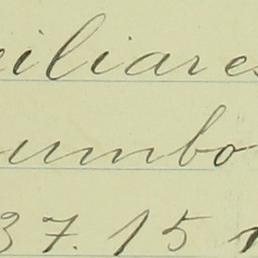 eiliares
umbo
37.15